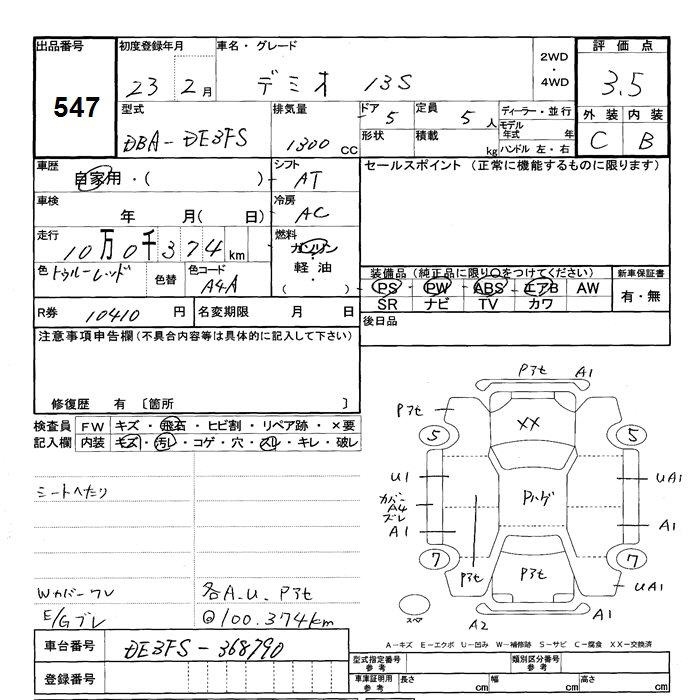 出品番号
547
初度登録年月
23 2月
車名・グレード
デミオ 13S
2WD
・
4WD
評価点
3.5
外装 内装
C B
型式
DBA-DE3FS
排気量
1300 CC
ドア 5
定員 5 人
形状
積載 kg
ディーラー・並行
モデル年式 年
ハンドル 左・右
車歴
自家用・( )
シフト
AT
車検
年 月( 日)
冷房
AC
走行
10万0千374km
燃料
ガソリン
・
軽油
( )
色
トゥルーレッド
色替
色コード
A4A
R券 10410 円
名変期限 月 日
セールスポイント(正常に機能するものに限ります)
装備品(純正品に限り○をつけてください)
PS・PW・ABS・エアB AW
SR ナビ TV カワ
新車保証書
有・無
後日品
注意事項申告欄(不具合内容等は具体的に記入して下さい)
修復歴 有 〔箇所 〕
検査員記入欄
FW キズ・飛石・ヒビ割・リペア跡・×要
内装 キズ・汚レ・コゲ・穴・スレ・キレ・破レ
シートへたり
Wカバーワレ
E/Gブレ
各A.U.Pアセ
◎100.374km
車台番号
DE3FS-368790
登録番号
Pアセ A1
Pアセ
XX
5 5
U1
UA1
カバー
A4
ズレ
Pハゲ
A1 A1
7 7
Pアセ
Pアセ
UA1
スペア
A2 A1
A-キズ E-エクボ U-凹み W-補修跡 S-サビ C-腐食 XX-交換済
型式指定番号
参考
類別区分番号
参考
車庫証明用
参考
長さ cm
幅 cm
高さ cm